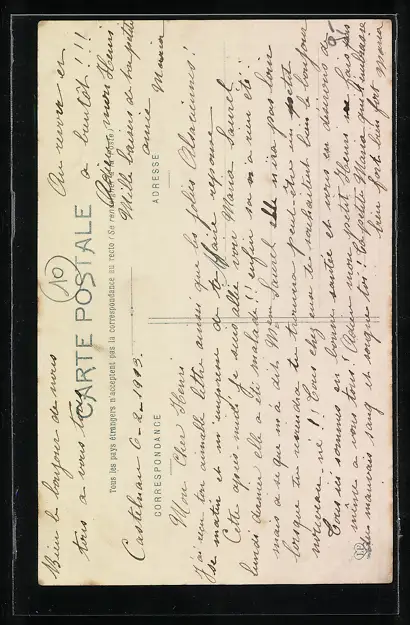 CARTE POSTALE
Tous les pays étrangers n'acceptent pas la correspondance au recto (Se renseigner à la Poste)
CORRESPONDANCE
ADRESSE
10
Castelnau 6-2-1913.
Mon Cher Henri
J'ai reçu ton aimable lettre ainsi que les jolies Alsaciennes!
ce matin et m'empresse de te faire réponse
Cette après midi je suis allée voir Maria Saurel
lundi dernier elle a été malade!! enfin sa n'a rien été!!
mais a se que m'a dit Mme Saurel elle n'ira pas loin
lorsque tu viendras tu trouveras peut être un petit
nouveau né!! Tous chez eux te souhaitent bien le bonjour
Tous ici sommes en bonne santée et vous en désirons de
même a vous tous! Adieu mon petit Henri ne fais pas
de mauvais sang et songe toi! Ta petite Maria qui t'embrasse
bien fort bien fort Maria
Bien le bonjour de nous
tous a vous tous
Au revoir et
a bientôt!!!
Adieu mon Henri
Mille baisers de ta petite
amie Maria